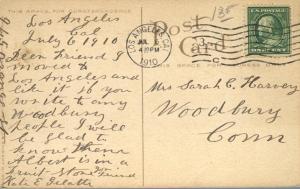 THIS SPACE FOR CORRESPONDENCE
Los Angeles
Cal
July 6, 1910
Dear Friend I
Los Angeles and
like it so if you
write to any
Woodbury
People I will
be glad to
know them
Albert is in a
Fruit Store
Kate E
Post
Card
LOS ANGELES, CAL.
JUL 6
4 PM
1910
Mrs Sarah C. Harvey
Woodbury
Conn